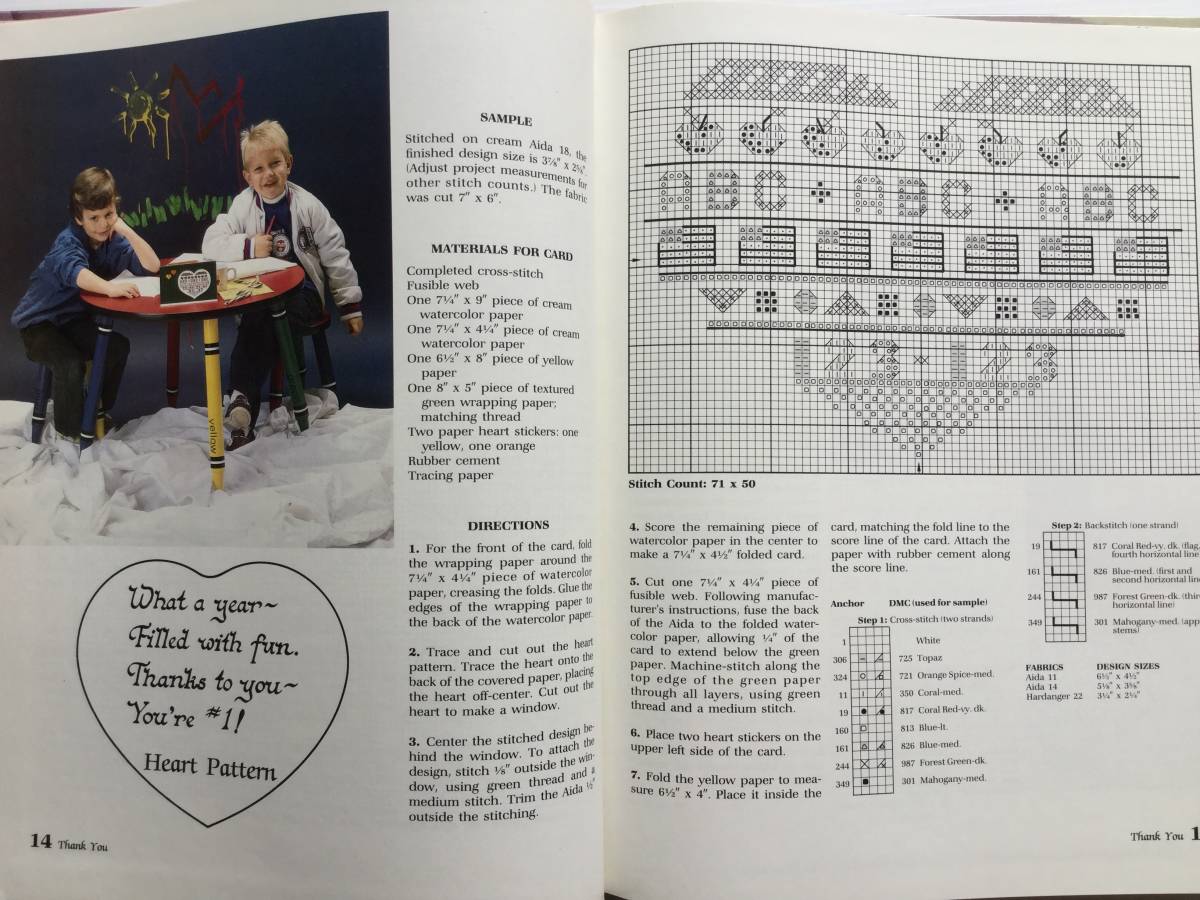 yellow
What a year~
Filled with fun.
Thanks to you~
You're #1!
Heart Pattern
14 Thank You
SAMPLE
Stitched on cream Aida 18, the
finished design size is 3⅞" x 2¾".
(Adjust project measurements for
other stitch counts.) The fabric
was cut 7" x 6".
MATERIALS FOR CARD
Completed cross-stitch
Fusible web
One 7¼" x 9" piece of cream
watercolor paper
One 7¼" x 4¼" piece of cream
watercolor paper
One 6½" x 8" piece of yellow
paper
One 8" x 5" piece of textured
green wrapping paper;
matching thread
Two paper heart stickers: one
yellow, one orange
Rubber cement
Tracing paper
DIRECTIONS
1. For the front of the card, fold
the wrapping paper around the
7¼" x 4¼" piece of watercolor
paper, creasing the folds. Glue the
edges of the wrapping paper to
the back of the watercolor paper.
2. Trace and cut out the heart
pattern. Trace the heart onto the
back of the covered paper, placing
the heart off-center. Cut out the
heart to make a window.
3. Center the stitched design be-
hind the window. To attach the
design, stitch ⅛" outside the win-
dow, using green thread and a
medium stitch. Trim the Aida ½"
outside the stitching.
ABC + ABC + ABC
123 x 123
Stitch Count: 71 x 50
4. Score the remaining piece of
watercolor paper in the center to
make a 7¼" x 4½" folded card.
5. Cut one 7¼" x 4¼" piece of
fusible web. Following manufac-
turer's instructions, fuse the back
of the Aida to the folded water-
color paper, allowing ¼" of the
card to extend below the green
paper. Machine-stitch along the
top edge of the green paper
through all layers, using green
thread and a medium stitch.
6. Place two heart stickers on the
upper left side of the card.
7. Fold the yellow paper to mea-
sure 6½" x 4". Place it inside the
card, matching the fold line to the
score line of the card. Attach the
paper with rubber cement along
the score line.
Anchor DMC (used for sample)
Step 1: Cross-stitch (two strands)
1 White
306 725 Topaz
324 721 Orange Spice-med.
11 350 Coral-med.
19 817 Coral Red-vy. dk.
160 813 Blue-lt.
161 826 Blue-med.
244 987 Forest Green-dk.
349 301 Mahogany-med.
Step 2: Backstitch (one strand)
19 817 Coral Red-vy. dk. (flag,
fourth horizontal line
161 826 Blue-med. (first and
second horizontal line
244 987 Forest Green-dk. (thir
horizontal line)
349 301 Mahogany-med. (app
stems)
FABRICS DESIGN SIZES
Aida 11 6½" x 4½"
Aida 14 5⅛" x 3⅝"
Hardanger 22 3¼" x 2¼"
Thank You 1